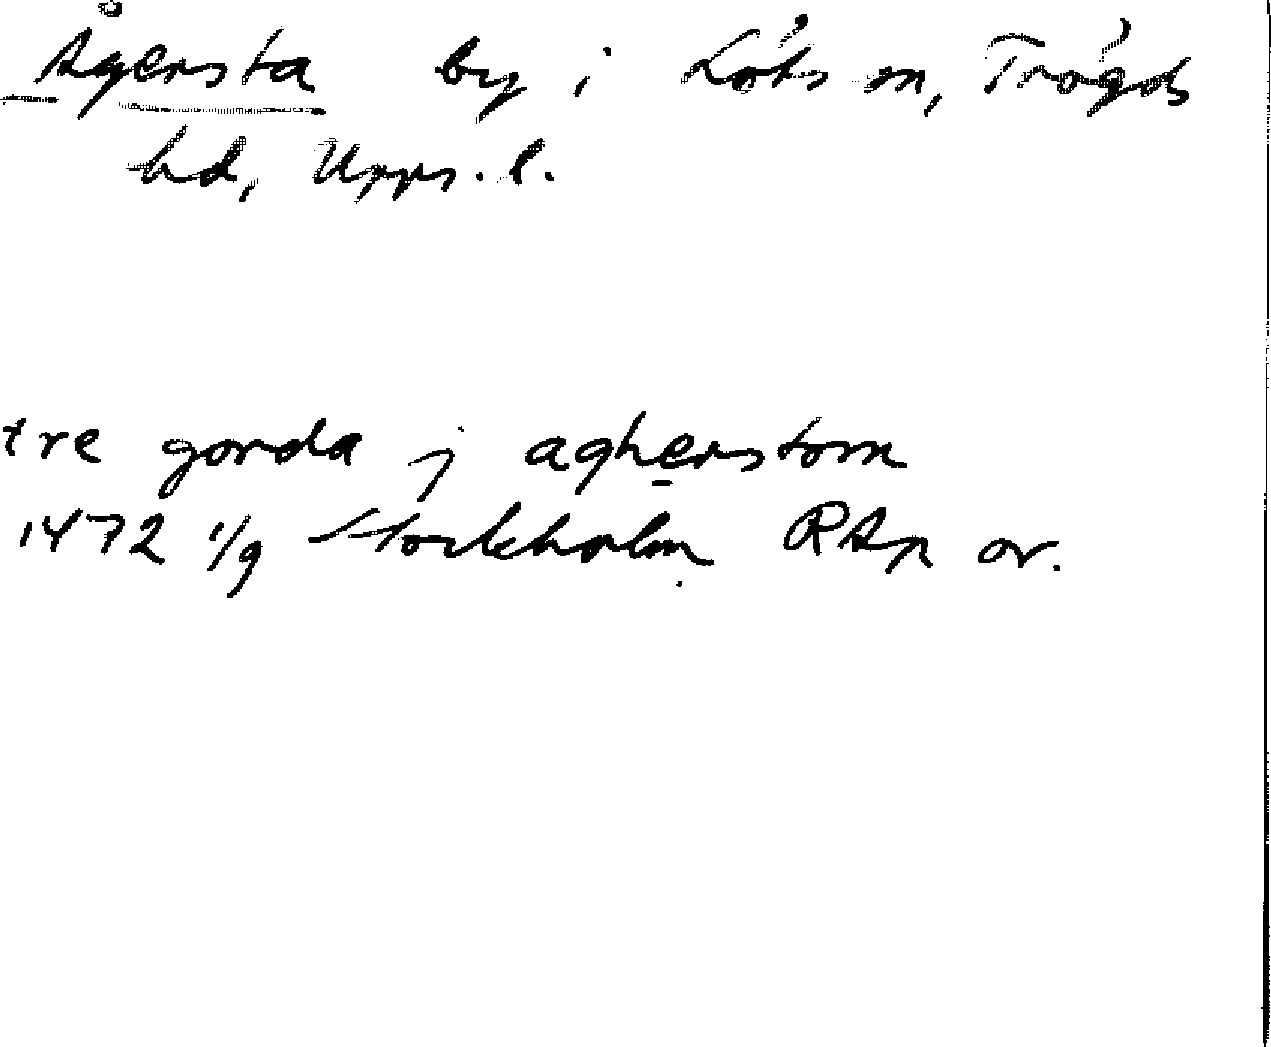 Ågersta by i Löts sn, Trögds
hd, Upps. l.
tre gorda j agherstom
1472 1/9 Stockholm RAp or.